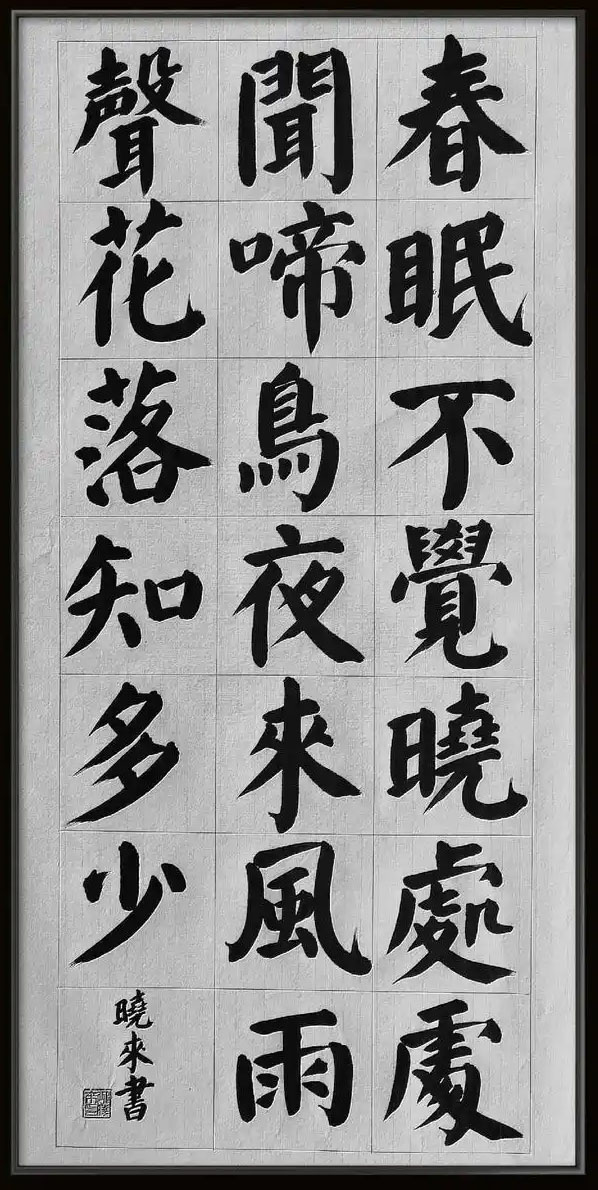 春眠不覺曉處處
聞啼鳥夜來風雨
聲花落知多少
曉來書